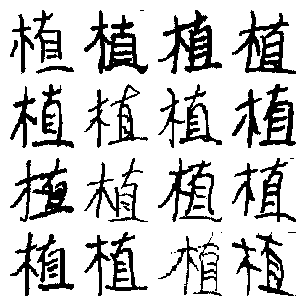 植植植植
植植植植
植植植植
植植植植